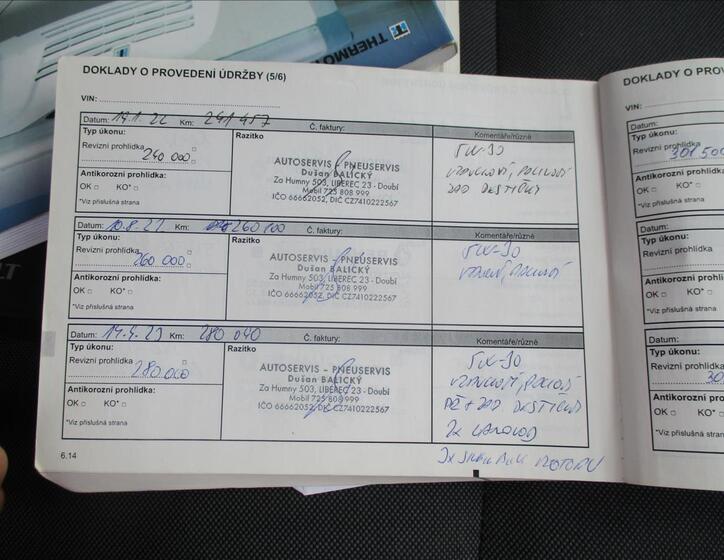 THERMO
DOKLADY O PROVEDENÍ ÚDRŽBY (5/6)
VIN:
Datum: 19.1.22 Km: 241 457 Č. faktury:
Typ úkonu:
Revizní prohlídka
240 000
Antikorozní prohlídka:
OK KO*
*Viz příslušná strana
Razítko
AUTOSERVIS - PNEUSERVIS
Dušan BALICKÝ
Za Humny 503, LIBEREC 23 - Doubí
Mobil 725 808 999
IČO 66662052, DIČ CZ7410222567
Komentáře/různé
5W-30
ZAD DESTIČKY
Datum: 10.8.22 Km: 260 100 Č. faktury:
Typ úkonu:
Revizní prohlídka
260 000
Antikorozní prohlídka:
OK KO*
*Viz příslušná strana
Razítko
AUTOSERVIS - PNEUSERVIS
Dušan BALICKÝ
Za Humny 503, LIBEREC 23 - Doubí
Mobil 725 808 999
IČO 66662052, DIČ CZ7410222567
Komentáře/různé
5W-30
Datum: 14.4.23 Km: 280 040 Č. faktury:
Typ úkonu:
Revizní prohlídka
280 000
Antikorozní prohlídka:
OK KO*
*Viz příslušná strana
Razítko
AUTOSERVIS - PNEUSERVIS
Dušan BALICKÝ
Za Humny 503, LIBEREC 23 - Doubí
Mobil 725 808 999
IČO 66662052, DIČ CZ7410222567
Komentáře/různé
5W-30
PŘ + ZAD DESTIČKY
2x
MOTORU
6.14
DOKLADY O PROV
VIN:
Datum:
Typ úkonu:
Revizní prohlídka
301 500
Antikorozní prohl
OK KO*
*Viz příslušná strana
Datum:
Typ úkonu:
Revizní prohlídka
Antikorozní prohl
OK KO*
*Viz příslušná strana
Datum:
Typ úkonu:
Revizní prohlídka
30
Antikorozní pro
OK KO*
*Viz příslušná strana